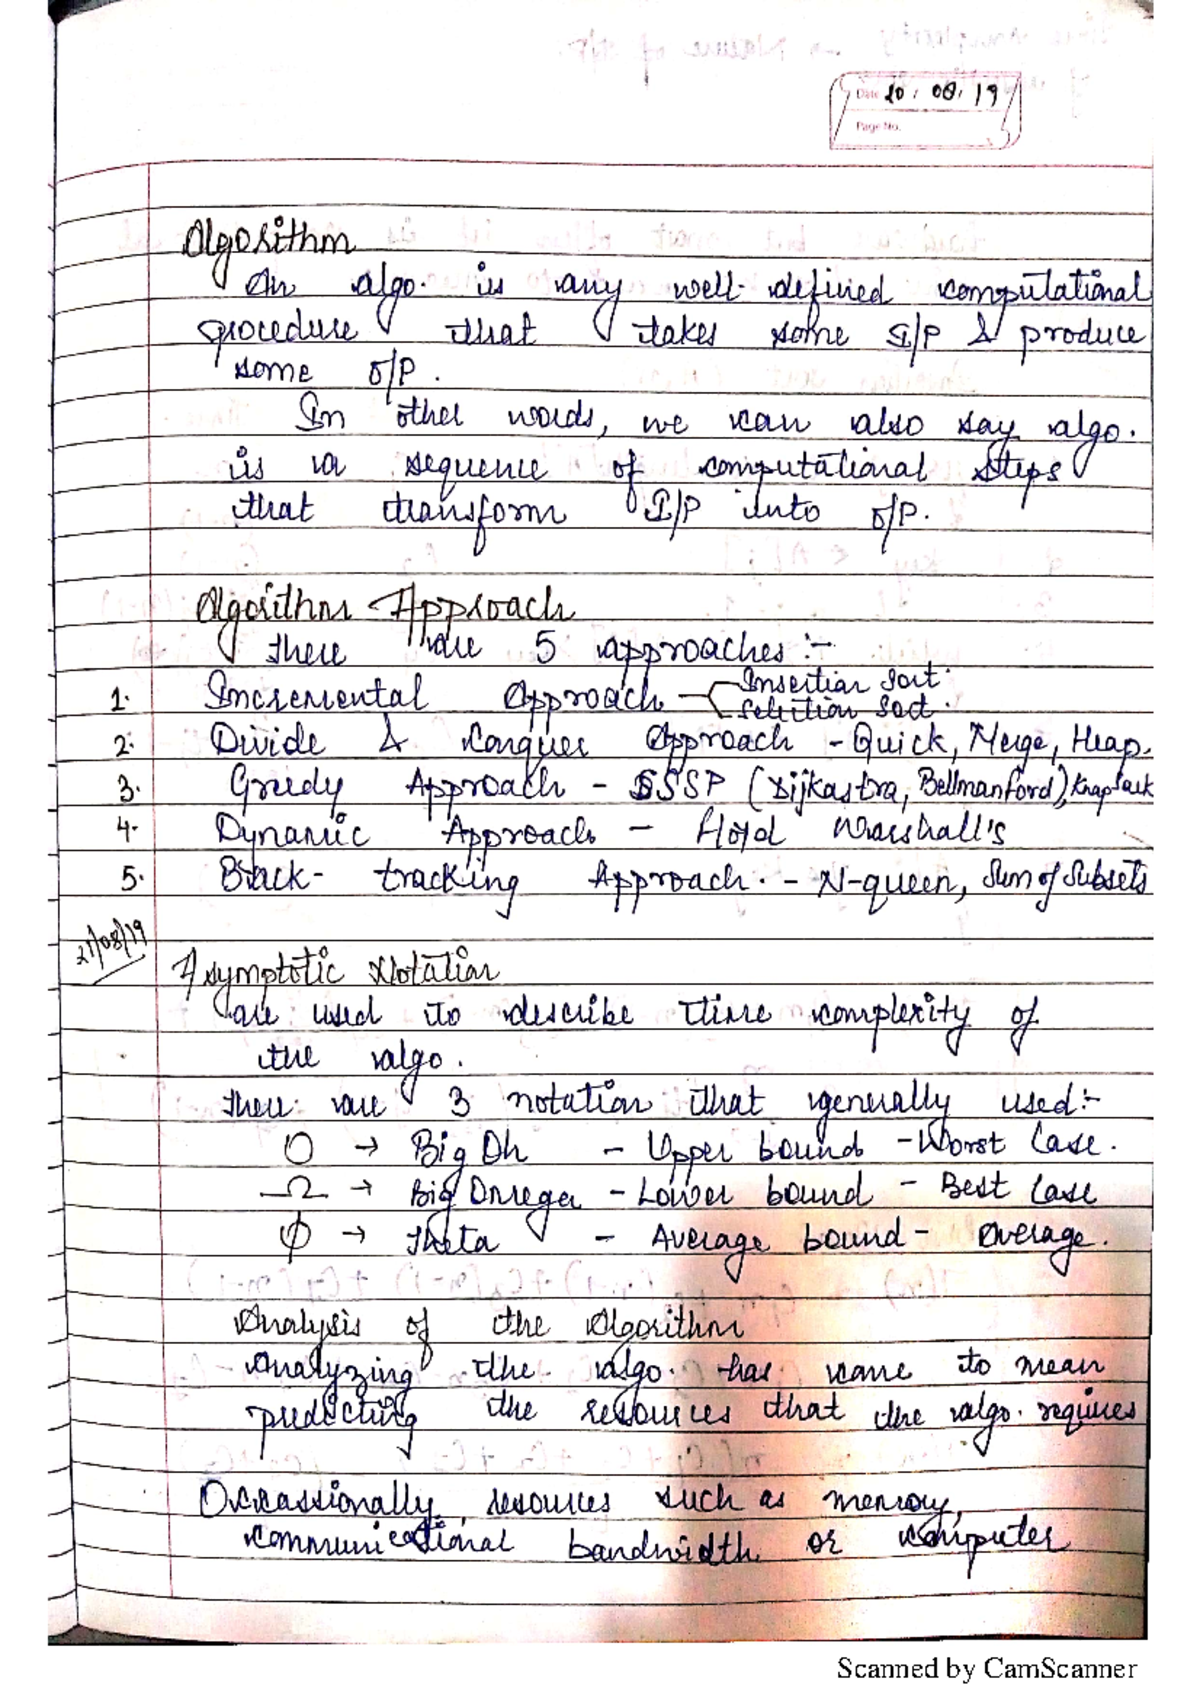 Date 20.08.19
Page No.
Algorithm
An algo. is any well-defined computational
procedure that takes some I/P & produce
some O/P.
In other words, we can also say algo.
is a sequence of computational steps
that transform I/P into O/P.
Algorithm Approach
There are 5 approaches :-
1. Incremental Approach - Insertion Sort.
Selection Sort.
2. Divide & Conquer Approach - Quick, Merge, Heap.
3. Greedy Approach - SSSP (Dijkastra, Bellmanford), Knapsack
4. Dynamic Approach - Floyd Warshall's
5. Back-tracking Approach. - N-queen, Sum of Subsets
21/08/19
Asymptotic Notation
are used to describe time complexity of
the algo.
There are 3 notation that generally used:-
O → Big Oh - Upper bound - Worst Case.
Ω → Big Omega - Lower bound - Best Case
ϕ → Theta - Average bound - Average.
Analysis of the Algorithm
Analyzing the algo. has came to mean
predicting the resources that the algo. requires
Occassionally, resources such as memory,
communicational bandwidth or computer
Scanned by CamScanner